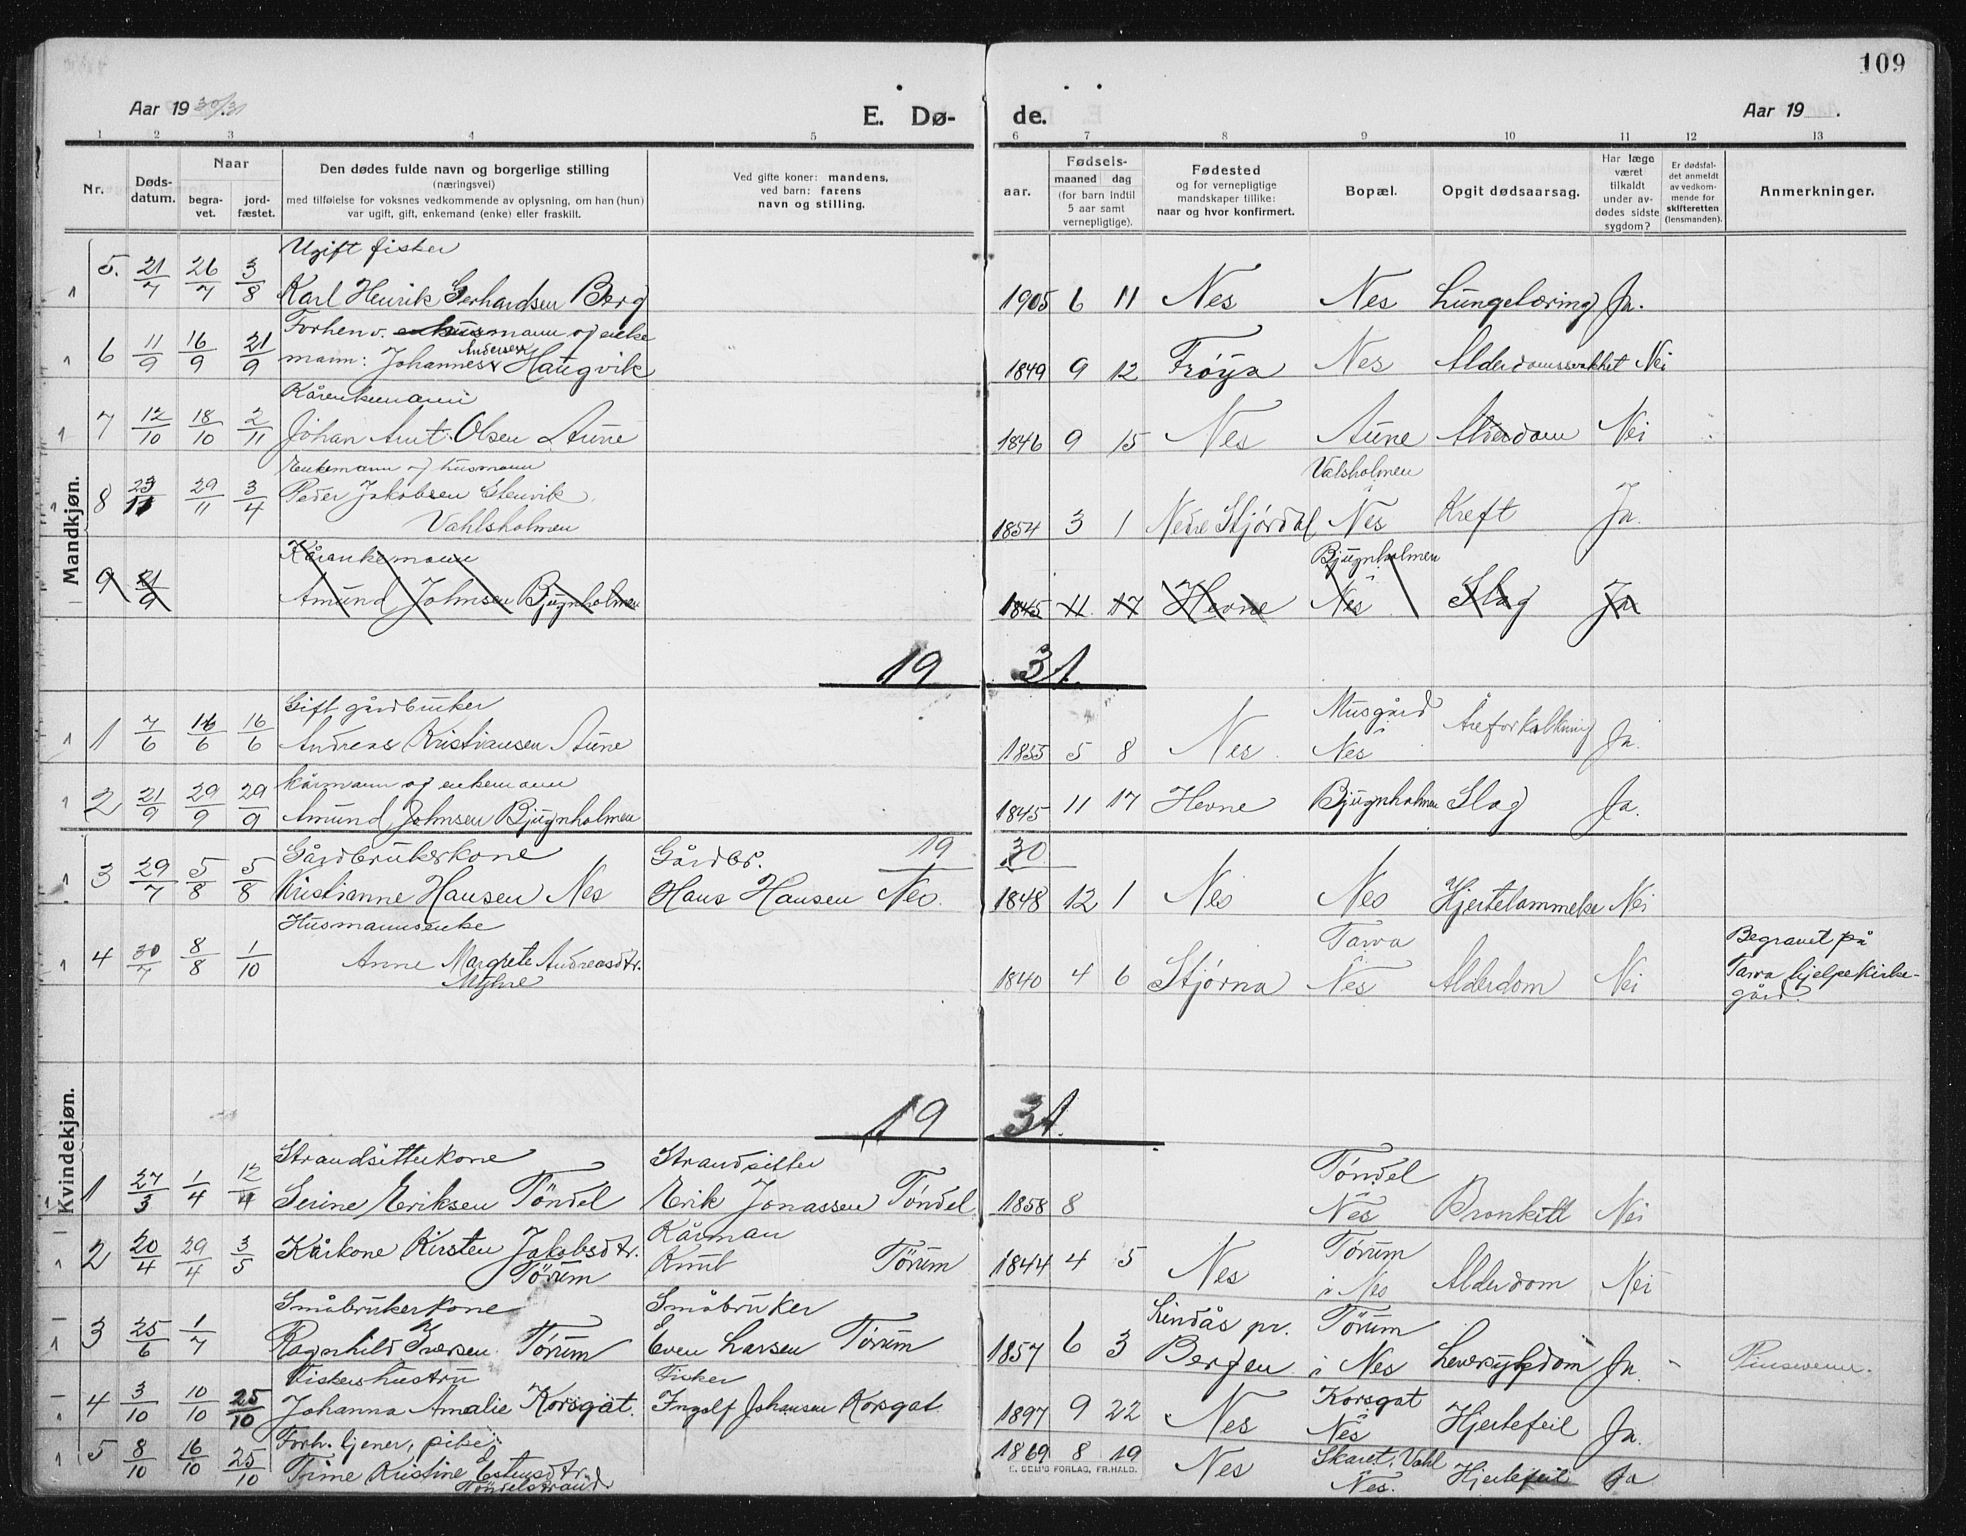 109
Aar 19 30/31
E. Dø-
de.
Aar 19 .
1 2 3 4 5 6 7 8 9 10 11 12 13
Nr.
Døds-
datum.
Naar
begra-
vet.
jord-
fæstet.
Den dødes fulde navn og borgerlige stilling
(næringsvei)
med tilføielse for voksnes vedkommende av oplysning, om han (hun)
var ugift, gift, enkemand (enke) eller fraskilt.
Ved gifte koner: mandens,
ved barn: farens
navn og stilling.
aar.
Fødsels-
maaned dag
(for barn indtil
5 aar samt
vernepligtige).
Fødested
og for vernepligtige
mandskaper tillike:
naar og hvor konfirmert.
Bopæl.
Opgit dødsaarsag.
Har læge
været
tilkaldt
under av-
dødes sidste
sygdom?
Er dødsfal-
det anmeldt
av vedkom-
mende for
skifteretten
(lensmanden).
Anmerkninger.
Mandkjøn.
Ugift fisker
5. 21/7 26/7 3/8 Karl Henrik Gerhardsen Berg 1905 6 11 Nes Nes Lungetæring Ja.
Forhenv. husmann og enke
6 11/9 16/9 21/9 mann: Johannes Andersen Haugvik 1849 9 12 Frøya Nes Alderdomssvakhet Nei
Kårenkemann
7 12/10 18/10 2/11 Johan Arnt Olsen Aune 1846 9 15 Nes Aune Alderdom Nei
Enkemann og husmann Valsholmen
8 23/11 29/11 3/4 Peder Jakobsen Stenvik 1854 3 1 Nedre Stjørdal Nes Kreft Ja.
Vahlsholmen
Kårenkemann Bjugnholmen
9 21/9 Amund Johnsen Bjugnholmen 1845 11 17 Hevne Nes Slag Ja
19 31.
Gift gårdbruker Musgård
1 7/6 16/6 16/6 Andreas Kristiansen Aune 1853 5 8 Nes Nes Åreforkalkning Ja.
kårmann og enkemann
2 21/9 29/9 29/9 Amund Johnsen Bjugnholmen 1845 11 17 Hevne Bjugnholmen Slag Ja.
Kvindekjøn.
19 30
Gårdbrukerkone Gårdbr.
3 29/7 5/8 5/8 Kristianne Hansen Nes Hans Hansen Nes. 1848 12 1 Nes Nes Hjertelammelse Nei
Husmannsenke Tarva Begravet på
4 30/7 8/8 1/10 Anne Margrete Andreasdtr. 1840 4 6 Stjørna Nes Alderdom Nei Tarva hjelpekirke-
Myhre gård.
19 31.
Strandsitterkone Strandsitter Tøndel
1 27/3 1/4 12/4 Serine Eriksen Tøndel Erik Jonassen Tøndel 1858 8 Nes Bronkitt Nei
Kårman Tørum
2 20/4 29/4 3/5 Kårkone Kirsten Jakobsdtr. Knut Tørum 1844 4 5 Nes i Nes Alderdom Nei
Tørum
Småbrukerkone Småbruker Lindås pr. Tørum
3 25/6 1/7 Ragnhild Iversen Tørum Even Larsen Tørum 1857 6 3 Bergen i Nes Leversykdom Ja. Pinsevenn.
Fiskerhustru Fisker Korsgat
4 3/10 10/10 25/10 Johanna Amalie Korsgat. Ingolf Johansen Korsgat 1897 9 22 Nes Nes Hjertefeil Ja.
Forh. tjener, pike
5 8/10 16/10 25/10 Trine Kristine Estensdtr. 1869 8 19 Nes Skaret, Vahl Hjertefeil Ja
Tøndelstrand Nes.
E. SEM'S FORLAG, FR.HALD.